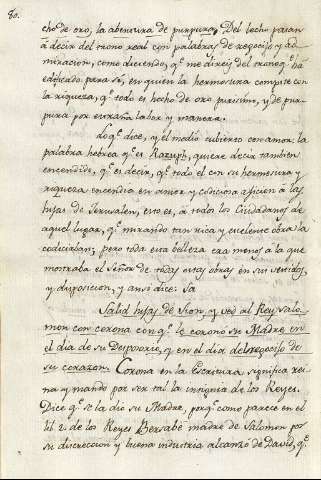 80.
cho de oro, la abertura de purpura. Del lecho pasan
á decir del trono real con palabras de regocijo y ad-
miracion, como diciendo, q.e me direis del trono q.e ha
edificado para sí, en quien la hermosura compite con
la riqueza, q.e todo es hecho de oro purisimo, y de pur-
pura por estraña labor y manera.
Lo q.e dice, y el medio cubierto con amor: la
palabra hebrea q.e es Razuph, quiere decir tambien
encendido, q.e es decir, q.e todo el con su hermosura y
riqueza encendia en amor y codiciosa aficion á las
hijas de Jerusalen, esto es, á todos los Ciudadanos de
aquel lugar, q.e mirando tan rica y excelente obra la
codiciaban; pero toda esta belleza era menos a la que
mostraba el Señor de todas estas obras en sus vestidos,
y disposicion, y ansi dice:
Salid hijas de Sion, y ved al Rey Salo-
mon con corona con q.e le coronó su Madre en
el dia de su Desposorio, y en el dia del regocijo de
su corazon. Corona en la Escritura significa rei-
na y mando por ser tal la insignia de los Reyes.
Dice q.e se la dio su Madre, porq.e como parece en el
lib 2. de los Reyes Bersabé madre de Salomon por
su discreccion y buena industria alcanzó de David, q.e